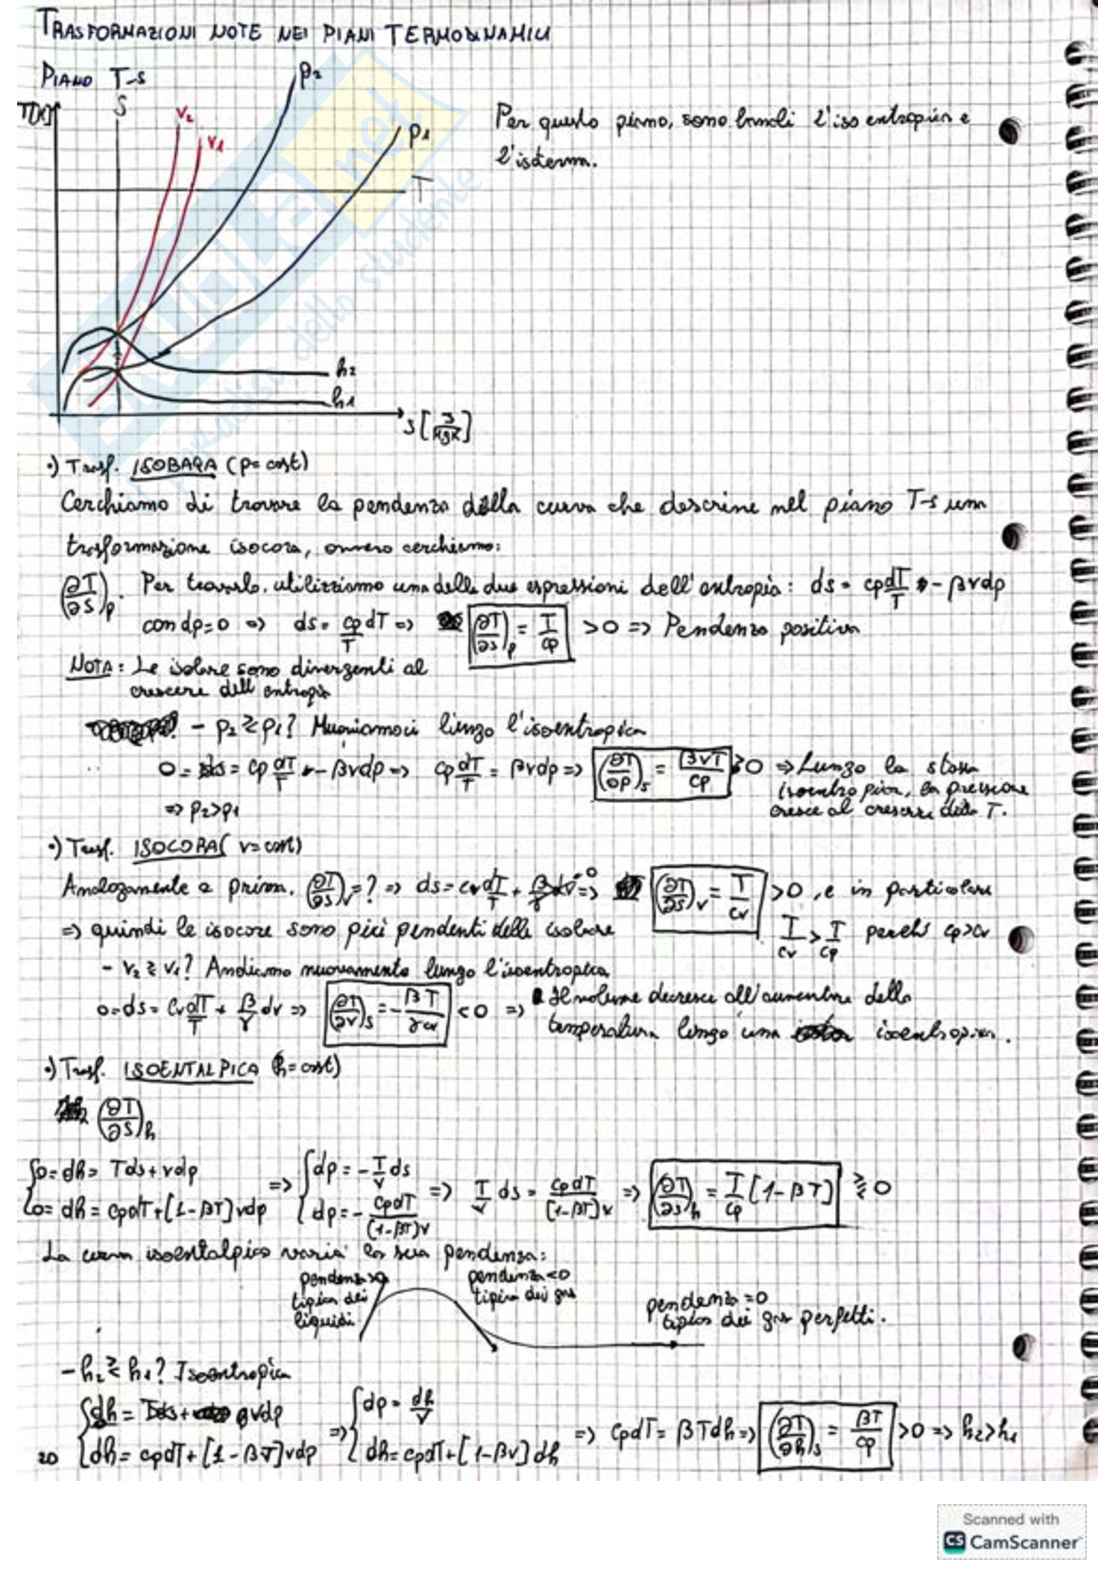 TRASFORMAZIONI NOTE NEI PIANI TERMODINAMICI
PIANO T-s
T[K]
S
V₂
V₁
p₂
p₁
T
h₂
h₁
s [J/kgK]
Per questo piano, sono banali l'isoentropica e
l'isoterma.
•) Trasf. ISOBARA (p=cost)
Cerchiamo di trovare la pendenza della curva che descrive nel piano T-s una
trasformazione isocora, ovvero cerchiamo:
(∂T/∂s)p. Per trovarlo, utilizziamo una delle due espressioni dell'entropia: ds = cp dT/T - βvdp
con dp=0 => ds = cp/T dT => (∂T/∂s)p = T/cp >0 => Pendenza positiva
NOTA: Le isobare sono divergenti al
crescere dell'entropia
- p₂ ≷ p₁? Muoviamoci lungo l'isoentropica
0 = ds = cp dT/T - βvdp => cp dT/T = βvdp => (∂T/∂p)s = βvT/cp >0 => Lungo la stessa
isoentropica, la pressione
cresce al crescere della T.
=> p₂>p₁
•) Trasf. ISOCORA (v=cost)
Analogamente a prima, (∂T/∂s)v = ? => ds = cv dT/T + β/γ dv=0 => (∂T/∂s)v = T/cv >0, e in particolare
T/cv > T/cp perché cp>cv
=> quindi le isocore sono più pendenti delle isobare
- v₂ ≷ v₁? Andiamo nuovamente lungo l'isoentropica
0=ds= cv dT/T + β/γ dv => (∂T/∂v)s = - βT/γcv <0 => Il volume decresce all'aumentare della
temperatura lungo una isoentropica.
•) Trasf. ISOENTALPICA (h=cost)
(∂T/∂s)h
{0=dh= Tds+vdp
{0=dh= cpdT+[1-βT]vdp => {dp = - T/v ds
{dp = - cpdT/(1-βT)v => T/v ds = cpdT/[1-βT]v => (∂T/∂s)h = T/cp [1-βT] ≷ 0
La curva isoentalpica varia la sua pendenza:
pendenza>0
tipica dei
liquidi
pendenza<0
tipica dei gas
pendenza=0
tipica dei gas perfetti.
- h₂ ≷ h₁? Isoentropica
{dh = Tds + vdp
{dh = cpdT+[1-βT]vdp => {dp = dh/v
{dh=cpdT+[1-βv]dh => cpdT = βTdh => (∂T/∂h)s = βT/cp >0 => h₂>h₁
20
Scanned with
CS CamScanner